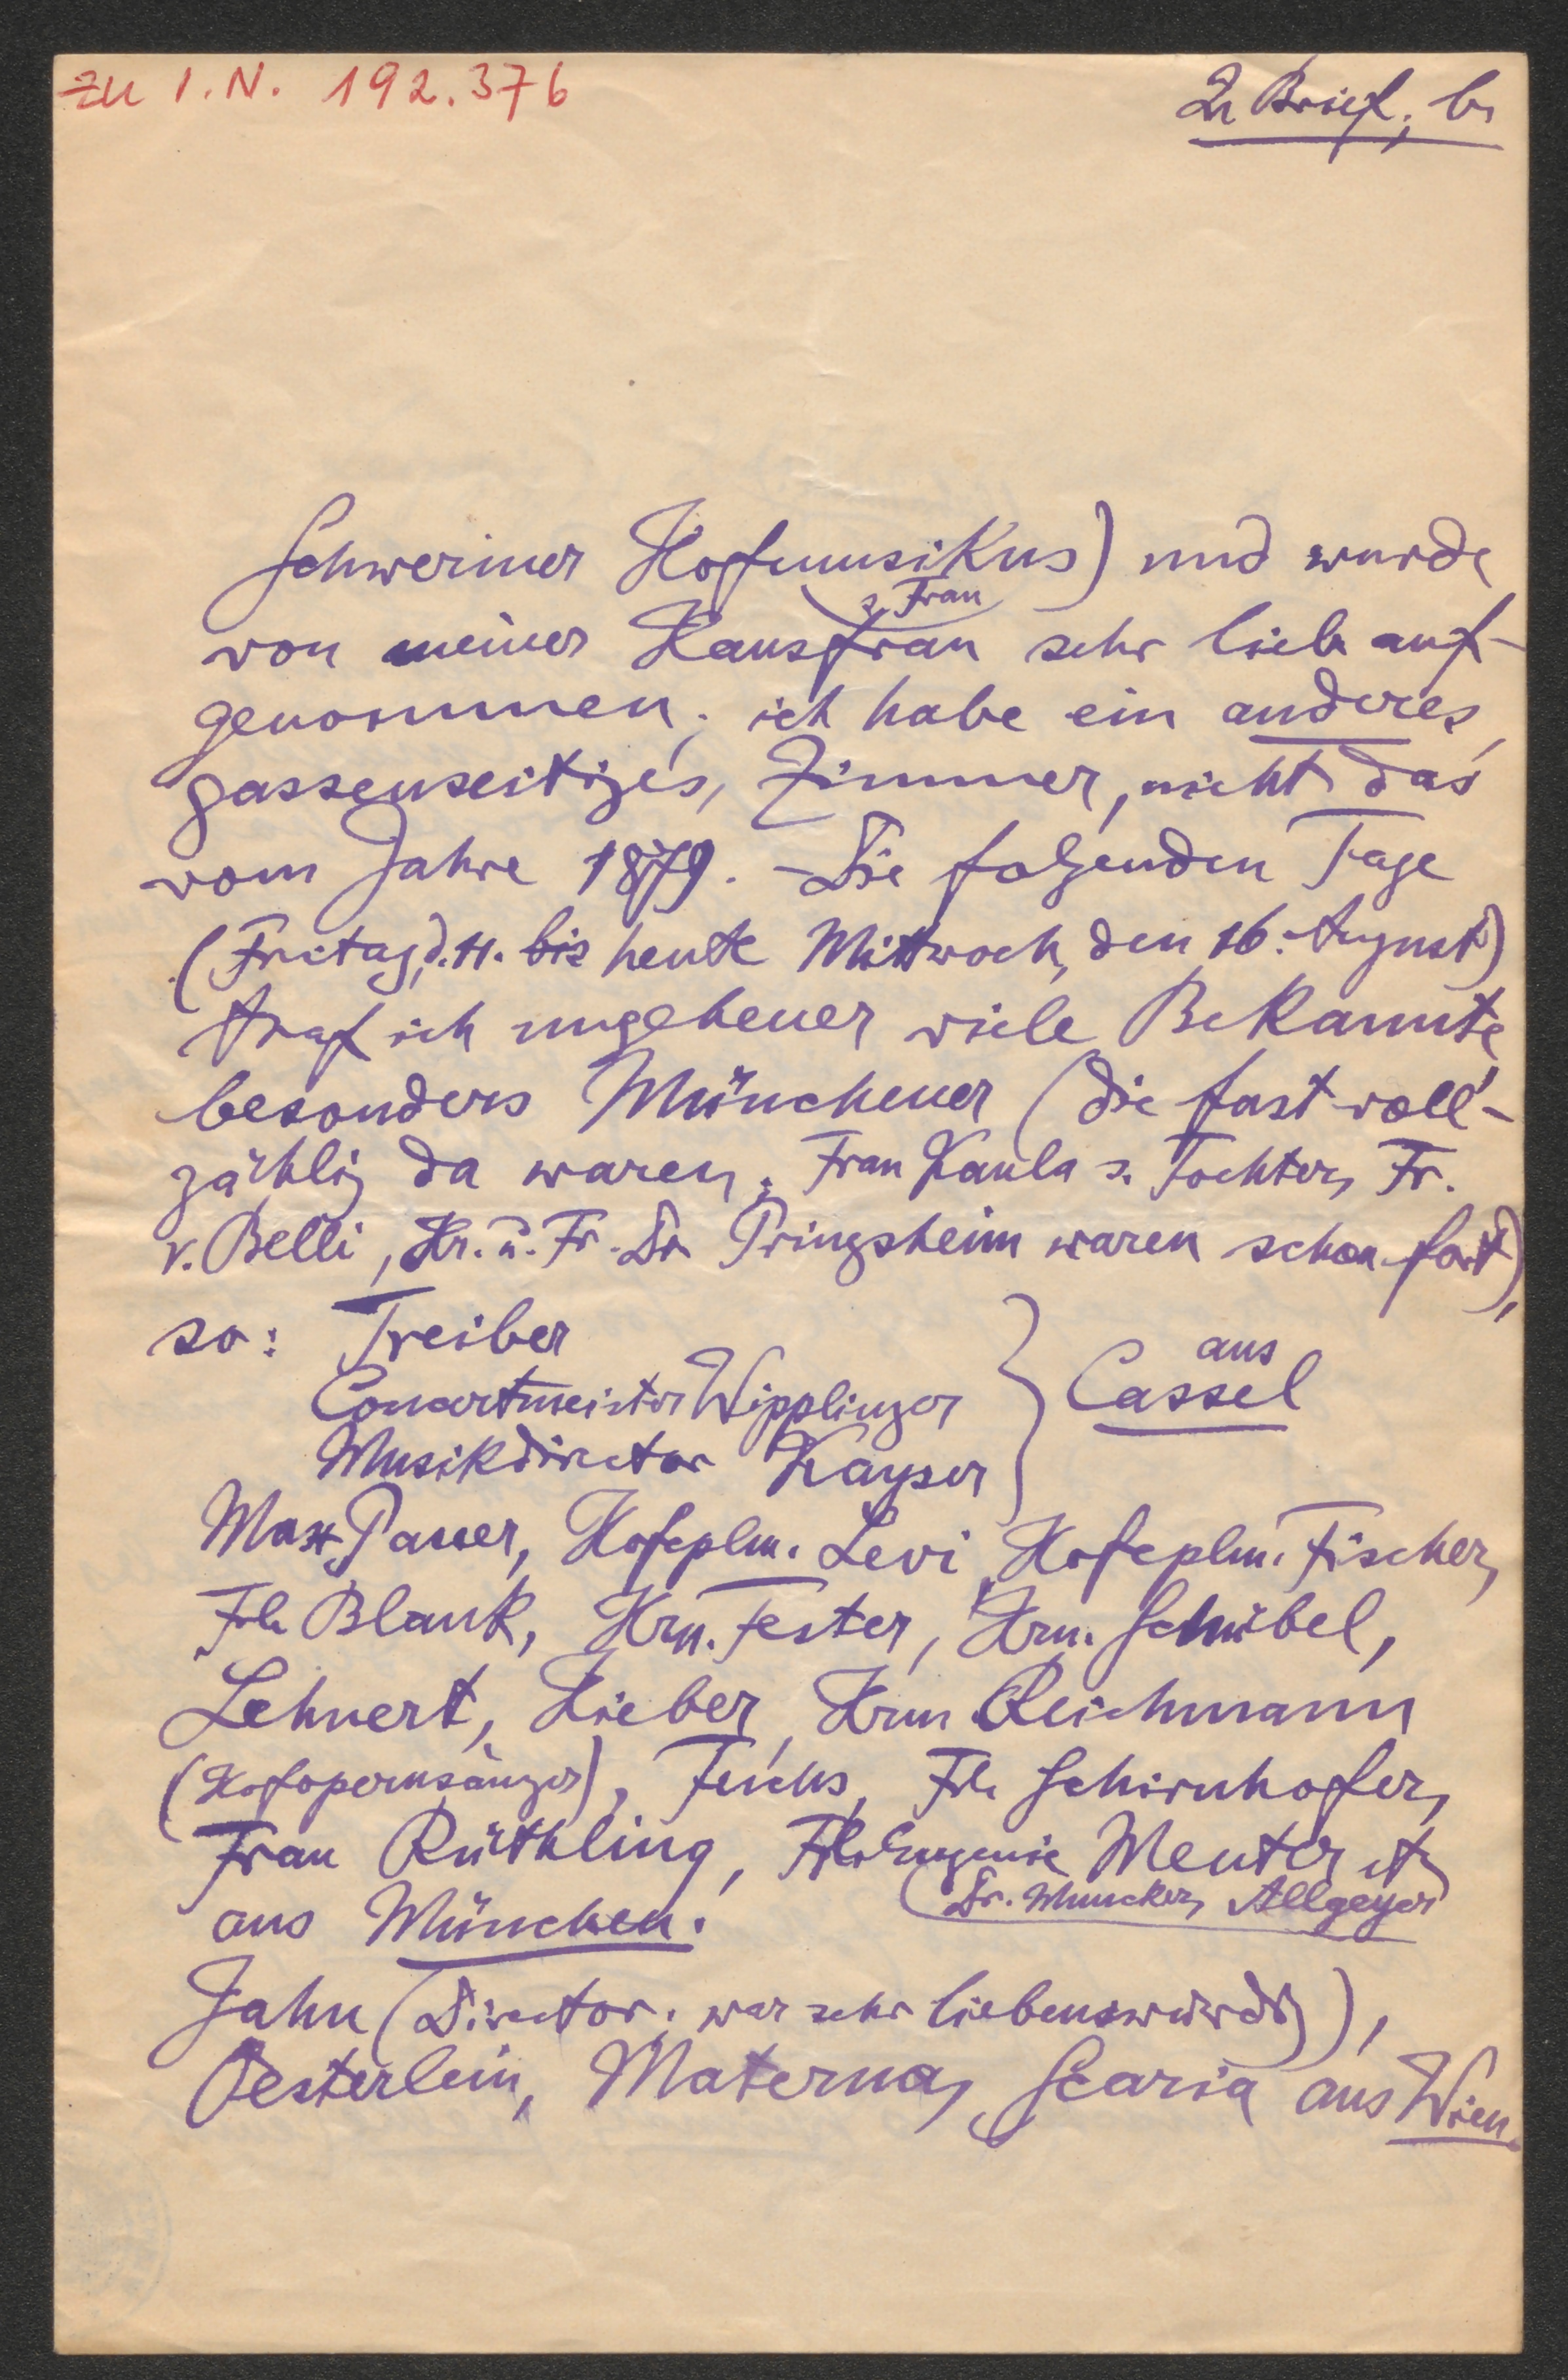 zu I.N. 192.376
2r Brief, b.
Schweriner Hofmusikus) und wurde
s. Frau
von meiner Hausfrau sehr lieb auf-
genommen; ich habe ein anderes,
gassenseitiges, Zimmer, nicht das
vom Jahre 1879. - Die folgenden Tage
(Freitag, d. 11. bis heute Mittwoch, den 16. August)
traf ich ungeheuer viele Bekannte,
besonders Münchener (die fast voll-
zählig da waren; Frau Kaula s. Tochter, Fr.
v. Belli, Hr. u. Fr. Dr. Pringsheim waren schon fort),
so: Treiber
Concertmeister Wipplinger
Musikdirector Kayser
aus
Cassel
Max Pauer, Hofcplm. Levi, Hofcplm. Fischer,
Frl. Blank, Hrn. Fester, Hrn. Schübel,
Lehnert, Hieber, Hrrn Reichmann
(Hofopernsänger), Fuchs, Frl. Schirnhofer,
Frau Rüthling, Frl. Eugenie Menter etc
(Dr. Muncker, Allgeyer)
aus München.
Jahn (Director; war sehr liebenswürdig),
Oesterlein, Materna, Scaria aus Wien.